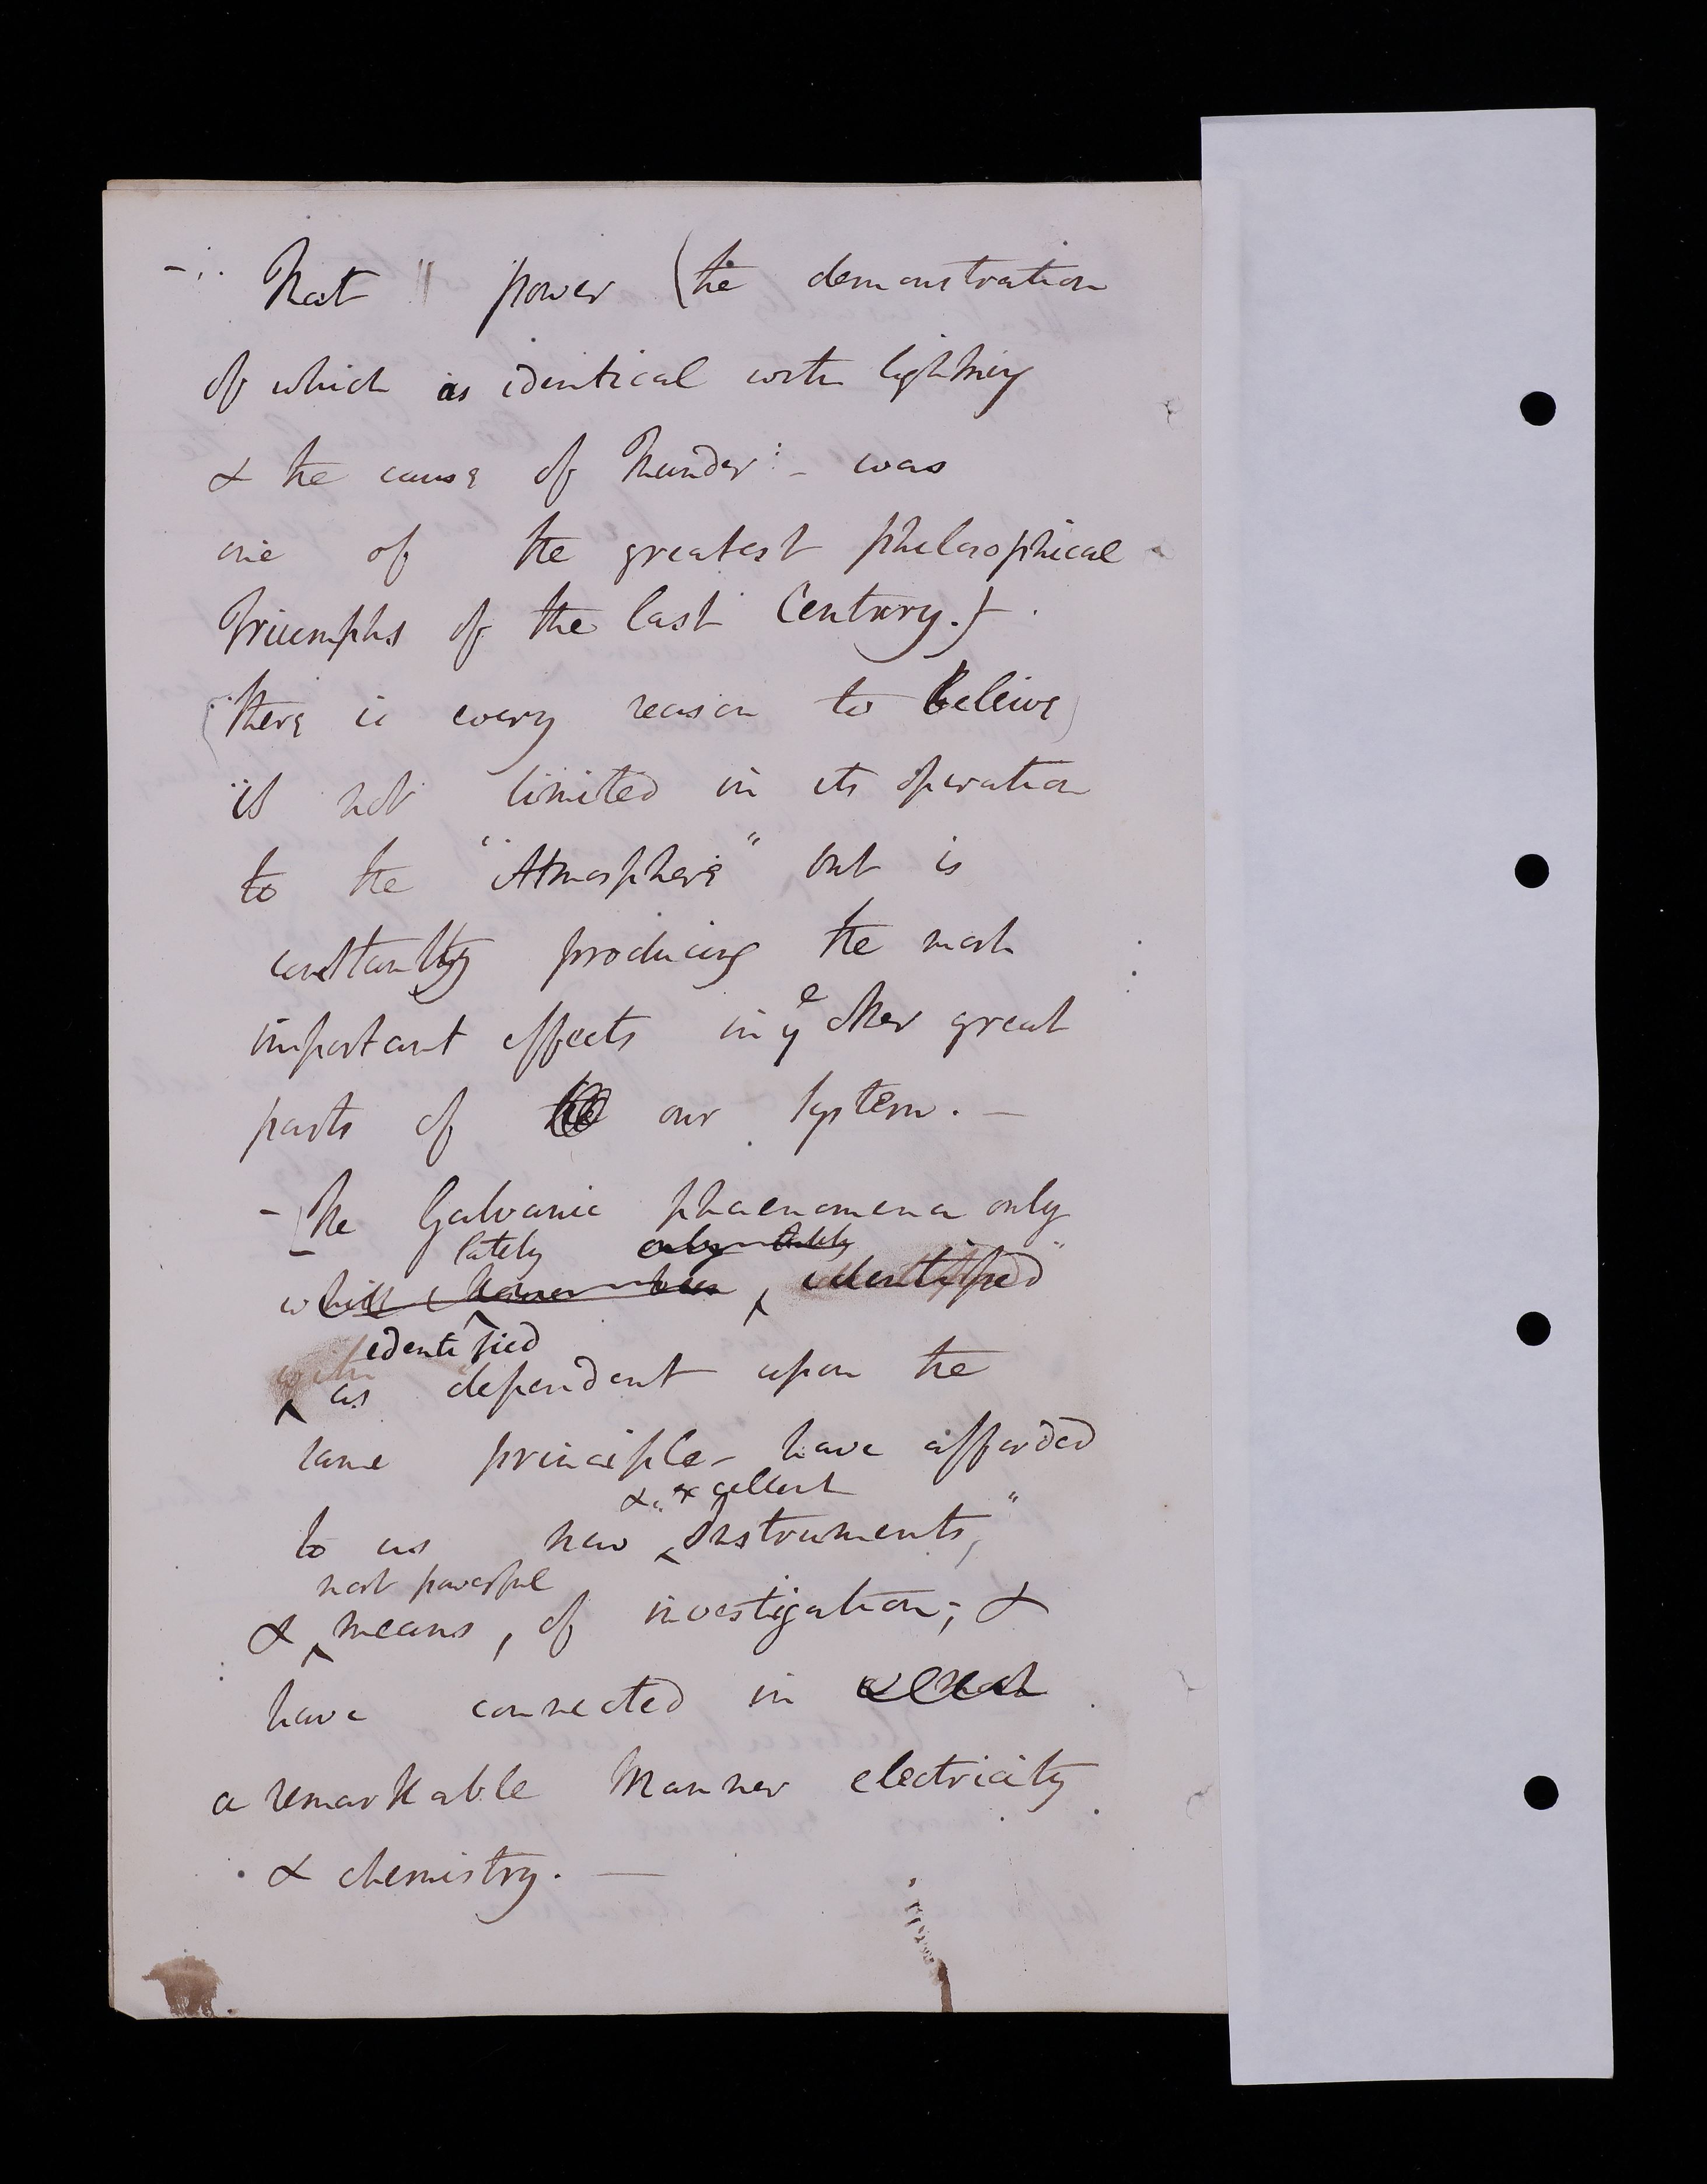 -:. That " power (the demonstration
of which as identical with lightning
& the cause of Thunder: - was
one of the greatest philosophical
Triumphs of the last Century.)-
(there is every reason to beleive)
is not limited in its operation
to the "Atmosphere" but is
constantly producing the most
important effects in yᵉ other great
parts of the our System. -
- The Galvanic phaenomena only
lately only lately
which have been ^ identified
identified
with ^ as dependent upon the
same principle - have afforded
& excellent
to us new ^ "Instruments,"
most powerful
& ^ means, of investigation; &
have connected in
a remarkable Manner electricity
& chemistry. -